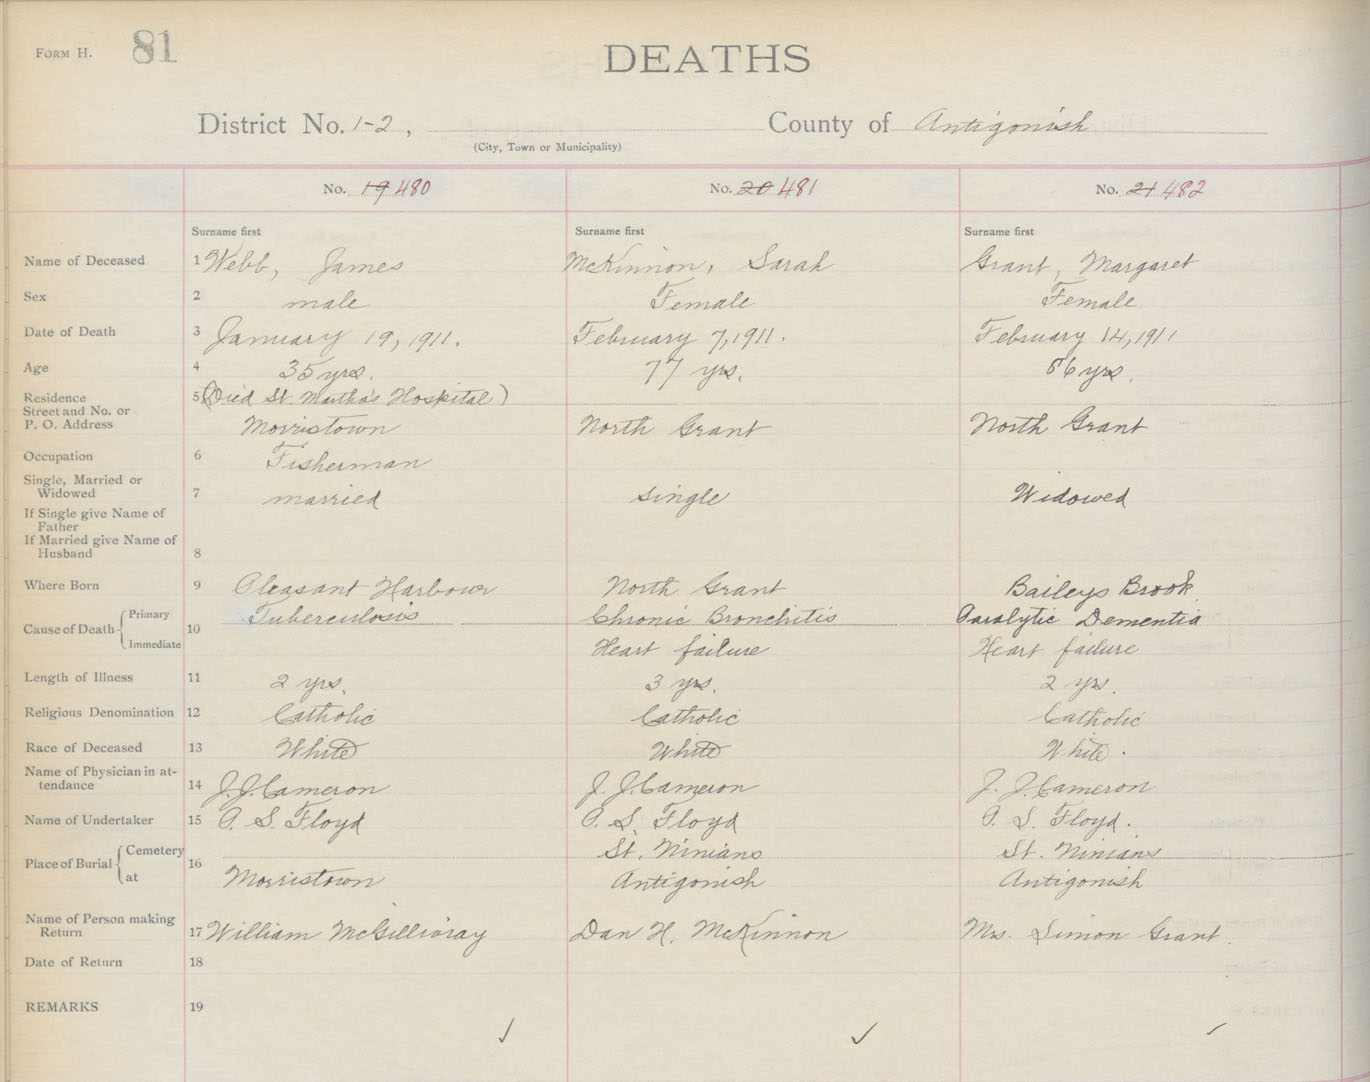 FORM H. 81
DEATHS
District No. 1-2, County of Antigonish
(City, Town or Municipality)
No. 19 480 No. 20 481 No. 21 482
Surname first Surname first Surname first
Name of Deceased 1 Webb, James McKinnon, Sarah Grant, Margaret
Sex 2 male Female Female
Date of Death 3 January 19, 1911. February 7, 1911. February 14, 1911
Age 4 35 yrs. 77 yrs. 86 yrs.
Residence 5 (Died St. Martha's Hospital)
Street and No. or
P. O. Address Morristown North Grant North Grant
Occupation 6 Fisherman
Single, Married or
Widowed 7 married single Widowed
If Single give Name of
Father
If Married give Name of
Husband 8
Where Born 9 Pleasant Harbour North Grant Baileys Brook
Cause of Death 10 Primary Tuberculosis Chronic Bronchitis Paralytic Dementia
Immediate Heart failure Heart failure
Length of Illness 11 2 yrs. 3 yrs. 2 yrs.
Religious Denomination 12 Catholic Catholic Catholic
Race of Deceased 13 White White White.
Name of Physician in at-
tendance 14 J. J. Cameron J. J. Cameron J. J. Cameron
Name of Undertaker 15 P. S. Floyd P. S. Floyd P. S. Floyd.
Place of Burial 16 Cemetery St. Ninians St. Ninians
at Morristown Antigonish Antigonish
Name of Person making
Return 17 William McGillivray Dan H. McKinnon Mrs. Simon Grant.
Date of Return 18
REMARKS 19